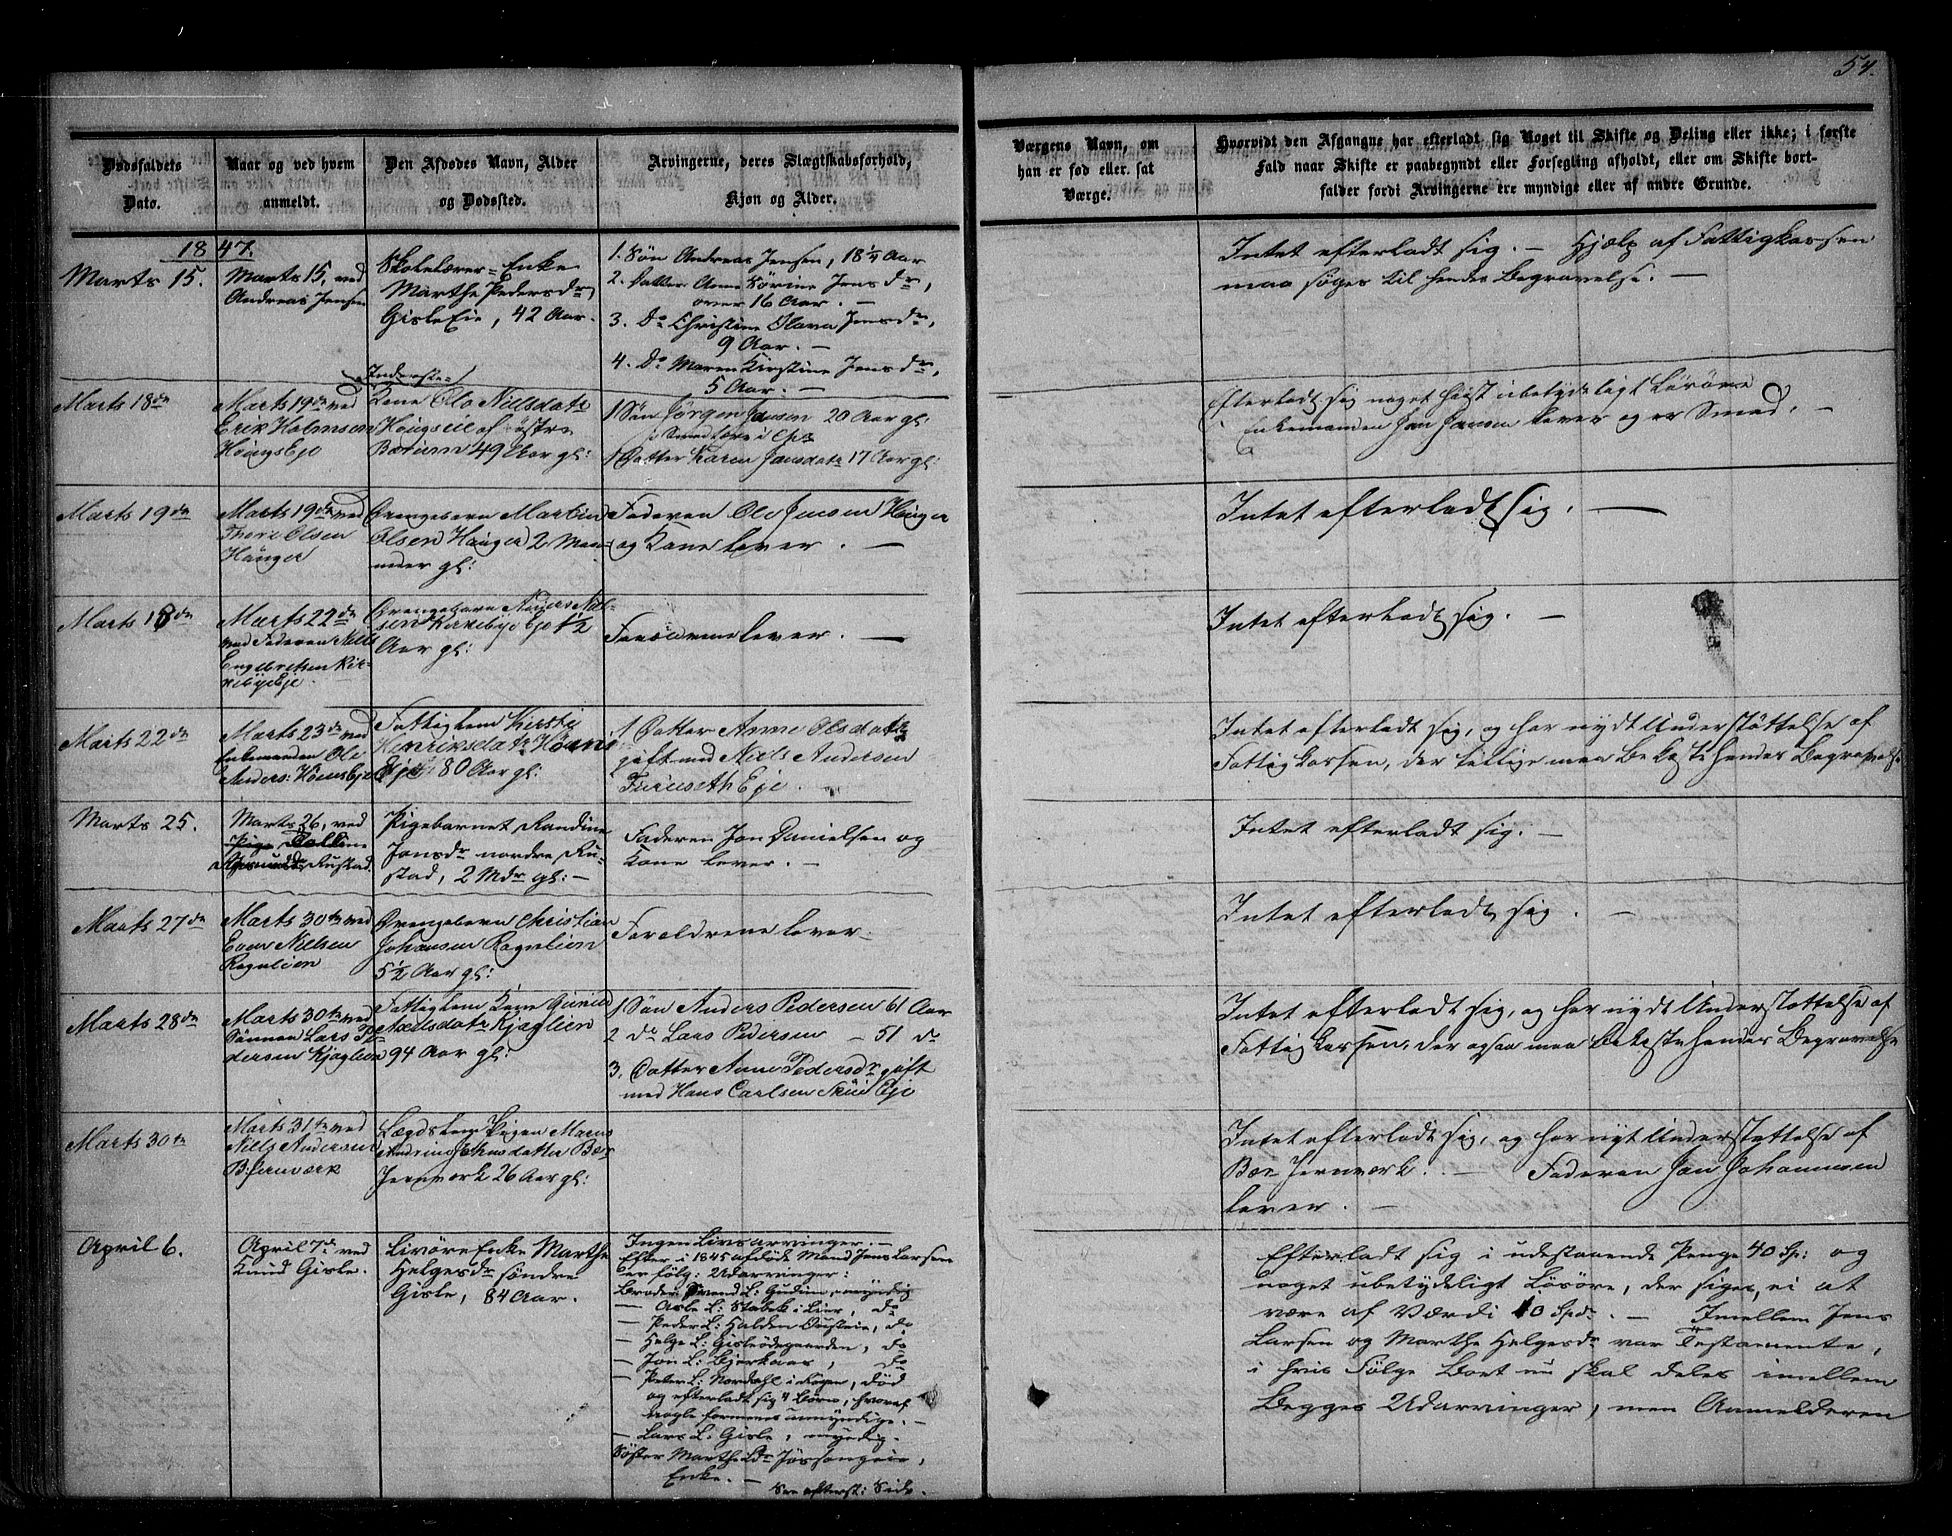 54.
Dødsfaldets
Dato.
Naar og ved hvem
anmeldt.
Den Afdødes Navn, Alder
og Dødssted.
Arvingerne, deres Slægtskabsforhold,
Kjøn og Alder.
Værgens Navn, om
han er fød eller sat
Værge.
Hvorvidt den Afgangne har efterladt sig Noget til Skifte og Deling eller ikke; i første
Fald naar Skifte er paabegyndt eller Forsegling afholdt, eller om Skifte bort-
falder fordi Arvingerne ere myndige eller af andre Grunde.
1847.
Marts 15.
Marts 15, ved
Andreas Jensen
Skolelærer-Enke
Marthe Pedersdr,
Gisle Eie, 42 Aar.
1. Søn Andreas Jensen, 18 1/4 Aar
2. Datter Anne Sørine Jensdr,
over 16 Aar. —
3. Do Christine Olava Jensdr,
9 Aar. —
4. Do Maren Kirstine Jensdr,
5 Aar. —
Intet efterladt sig. — Hjælp af Fattigkassen
maa søges til hendes Begravelse. —
Marts 18de
Marts 19de ved
Erik Holmsen
Houges Eje
Inderste-
Kone Olo Nielsdatr
Hougseie af østre
Bærum 49 Aar gl:
1 Søn Jørgen Jansen 20 Aar gl.
i Smedlære i Chra
1 Datter Karen Jansdatr 17 Aar gl:
Efterladt sig noget høist ubetydeligt Løsøre
Enkemanden Jan Jansen lever og er Smed. —
Marts 19de
Marts 19de ved
Thore Olsen
Hauger
Drengebarn Martin
Olsen Hauger 2 Maa-
neder gl:
Faderen Ole Jensen Hauger
og Kone lever. —
Intet efterladt sig. —
Marts 18de
Marts 22de
ved Faderen Niels
Engebretsen Kir-
kebyeEje.
Drengebarn Anders Niel-
sen Kirkebye Eje 1 1/2
Aar gl:
Forældrene lever. —
Intet efterladt sig. —
Marts 22de
Marts 23de ved
Enkemanden Ole
Anders: Hönseje
Fattiglem Kirstie
Henriksdatr Höns
Eje 80 Aar gl:
1 Datter Anne Olsdatter
gift med Niels Andersen
Furuseth Eje.
Intet efterladt sig, og har nydt Understøttelse af
Fattigkassen, der tillige maa bekoste hendes Begravelse
Marts 25.
Marts 26, ved
Pige
Rustad.
Pigebarnet Randine
Jonsdr nordre Ru-
stad, 2 Mdr gl: —
Faderen Jon Danielsen og
Kone lever. —
Intet efterladt sig. —
Marts 27de
Marts 30te ved
Even Nielsen
Rognlien
Drengebarn Christian
Johansen Rognlien
5 1/2 Aar gl:
Forældrene lever.
Intet efterladt sig. —
Marts 28de
Marts 30te ved
Sønnen Lars Pe-
dersen Kjaglien
Fattiglem Kone Gunild
Axelsdatr Kjaglien
94 Aar gl:
1 Søn Anders Pedersen 61 Aar
2 do Lars Pedersen — 51 do
3. Datter Anne Pedersdr gift
med Hans Carlsen Skui Eje
Intet efterladt sig, og har nydt Understøttelse af
Fattigkassen, der ogsaa maa bekoste hendes Begravelse
Marts 30te
Marts 31te ved
Niels Andersen
B: Jernværk
Lægdslem Pigen Maren
Andrine Johnsdatter Bær
Jernværk 26 Aar gl:
Intet efterladt sig, og har nyt Understøttelse af
Bær Jernværk. — Faderen Jon Johannesen
lever. —
April 6.
April 7de ved
Knud Gisle.
Livøre Enke Marthe
Helgesdr søndre
Gisle, 84 Aar.
Ingen Livsarvinger. —
Efter i 1845 afdöde Mand Jens Larsen
er følg: Udarvinger:
Broder Svend L: Gudim, myndig
— Asle L: Stabek i Lier, do
— Peder L: Halden , do
— Helge L: Gisleødegaarden, do
— Jon L: Bjerkaas, do
— Peter L: Nordahl i , død
og efterladt sig 4 Børn, hvoraf
nogle formenes umyndige. —
— Lars L: Gisle, myndig.
Søster Marthe Ldr ,
Enke. —
See efterst: Side.
Efterladt sig i udestaaende Penge 40 Sp: og
noget ubetydeligt Løsøre, der siges, ei at
være af Værdi 10 Spd. — Imellem Jens
Larsen og Marthe Helgesdr var Testamente,
i hvis Følge Boet nu skal deles imellem
Begges Udarvinger, men Anmelderen